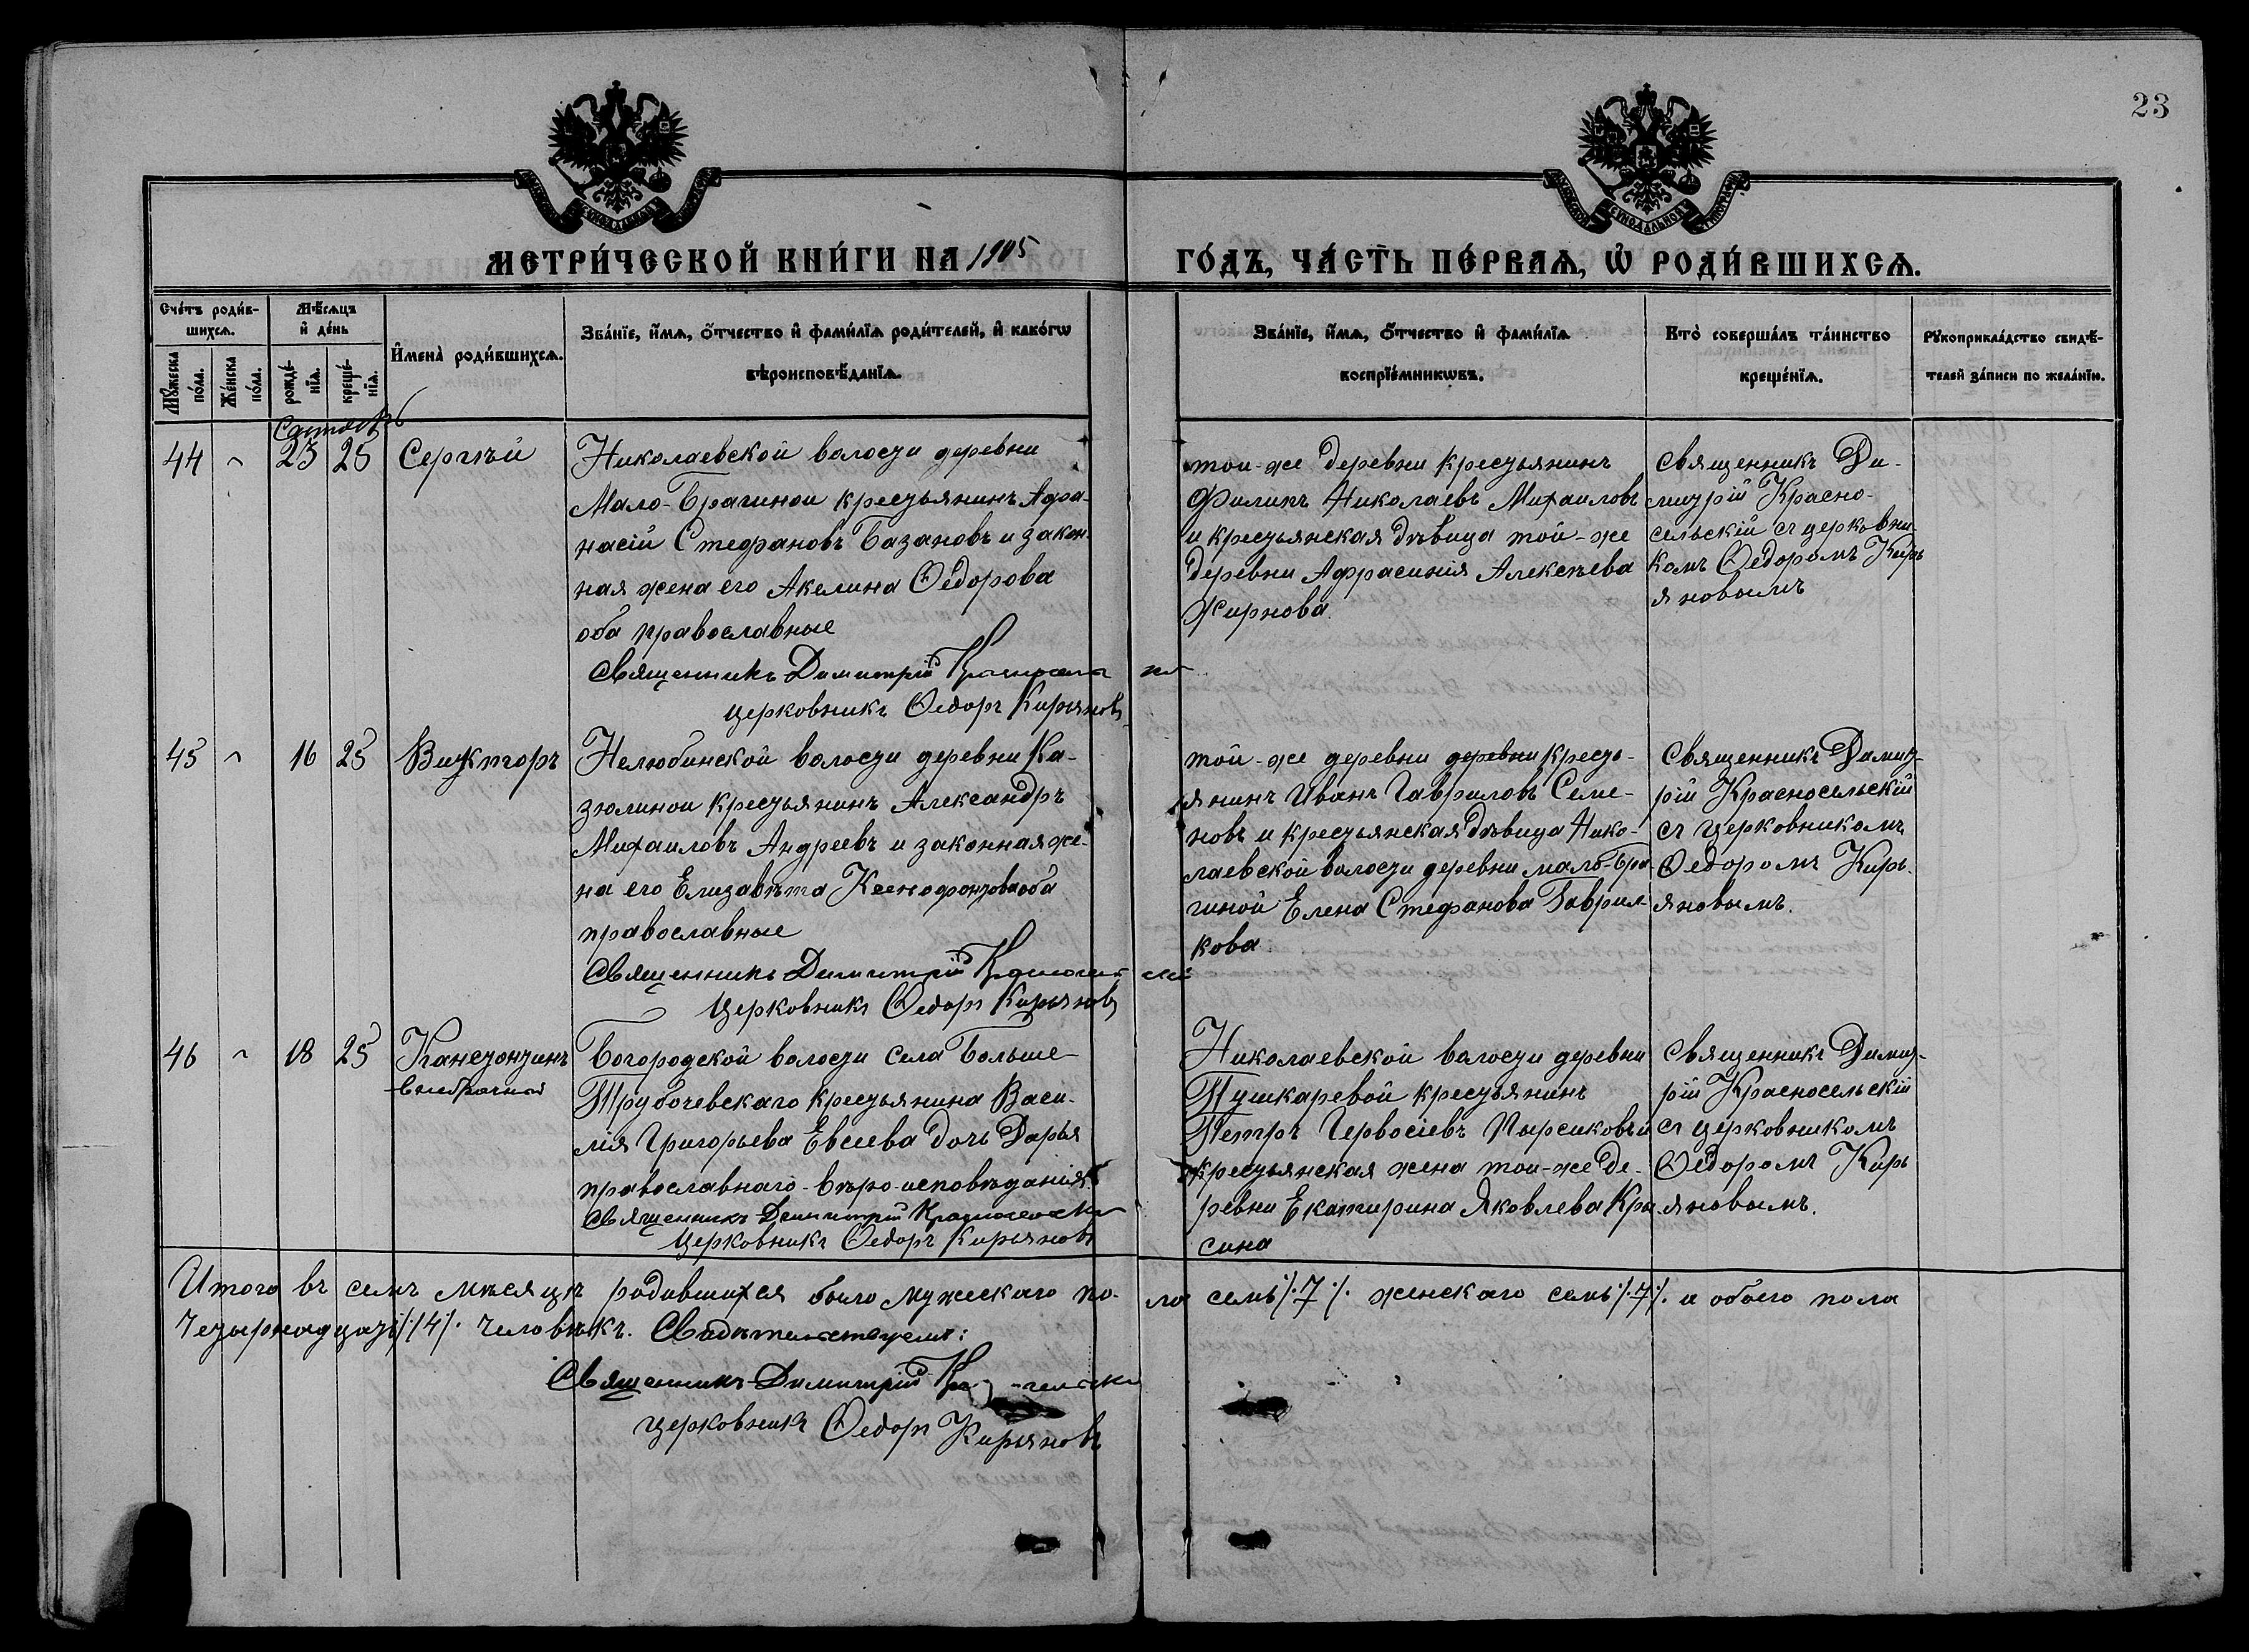 23
МЕТРИ́ЧЕСКОЙ КНИ́ГИ НА 1905 ГО́ДЪ, ЧА́СТЬ ПЕ́РВАѦ, Ѡ҆ РОДИ́ВШИХСѦ.
Сче́тъ роди́в-
шихсѧ.
Мꙋ́жеска по́ла.
Же́нска по́ла.
Мѣ́сѧцъ
и҆ де́нь
рожде́-
нїѧ.
креще́-
нїѧ.
И҆мена̀ роди́вшихсѧ.
Зва́нїе, и҆́мѧ, ѻ҆́тчество и҆ фами́лїѧ роди́телей, и҆ како́гѡ
вѣроисповѣ́данїѧ.
Зва́нїе, и҆́мѧ, ѻ҆́тчество и҆ фами́лїѧ
воспрїе́мникѡвъ.
Кто̀ соверша́лъ та́инство
креще́нїѧ.
Рꙋкоприкла́дство свидѣ́-
телей за́писи по жела́нїю.
44 23 25 Сергѣй
Николаевской волости деревни
Мало-Брагиной крестьянинъ Афа-
насій Стефановъ Базановъ и закон-
ная жена его Акелина Ѳедорова
оба православные
Священникъ Димитрій
церковникъ Ѳедоръ Кирьяновъ
той-же деревни крестьянинъ
Филипъ Николаевъ Михаиловъ
и крестьянская дѣвица той-же
деревни Афрасинія Алексѣева
Жирнова.
Священникъ Ди-
митрій Красно-
сельскій съ церковни-
комъ Ѳедоромъ Кирь
яновымъ
45 16 25 Викторъ
Нелюбинской волости деревни Ка-
зюлиной крестьянинъ Александръ
Михаиловъ Андреевъ и законная же-
на его Елизавѣта Ксенофонтова оба
православные
Священникъ Димитрій
Церковникъ Ѳедоръ Кирьяновъ
той-же деревни деревни кресть-
янинъ Иванъ Гавриловъ Семе-
новъ и крестьянская дѣвица Нико-
лаевской волости деревни мало-Бра
гиной Елена Стефанова Гаврил
кова.
Священникъ Димит-
рій Красносельскій
съ церковникомъ
Ѳедоромъ Кирь-
яновымъ.
46 18 25 Канстонтинъ
внебрачный
Богородской волости села Больше
Трубочевскаго крестьянина Васи-
лія Григорьева Евсеева дочь Дарья
православнаго-вѣро-исповѣданія.
Священникъ Димитрій Красносельскій
Церковникъ Ѳедоръ Кирьяновъ
Николаевской волости деревни
Пушкаревой крестьянинъ
Петръ Гервосіевъ Пырсиковъ и
крестьянская жена той-же де-
ревни Екатирина Яковлева Кра
сина
Священникъ Димит-
рій Красносельскій
съ церковникомъ
Ѳедоромъ Кирь
яновымъ.
Итого въ семъ мѣсяцѣ родившихся было мужескаго по- ла семь ./.7./. женскаго семь ./.7./. и обоего пола
Четырнадцать ./.14./. человѣкъ. Свидѣтельствуемъ:
Священникъ Димитрій
церковникъ Ѳедоръ Кирьяновъ